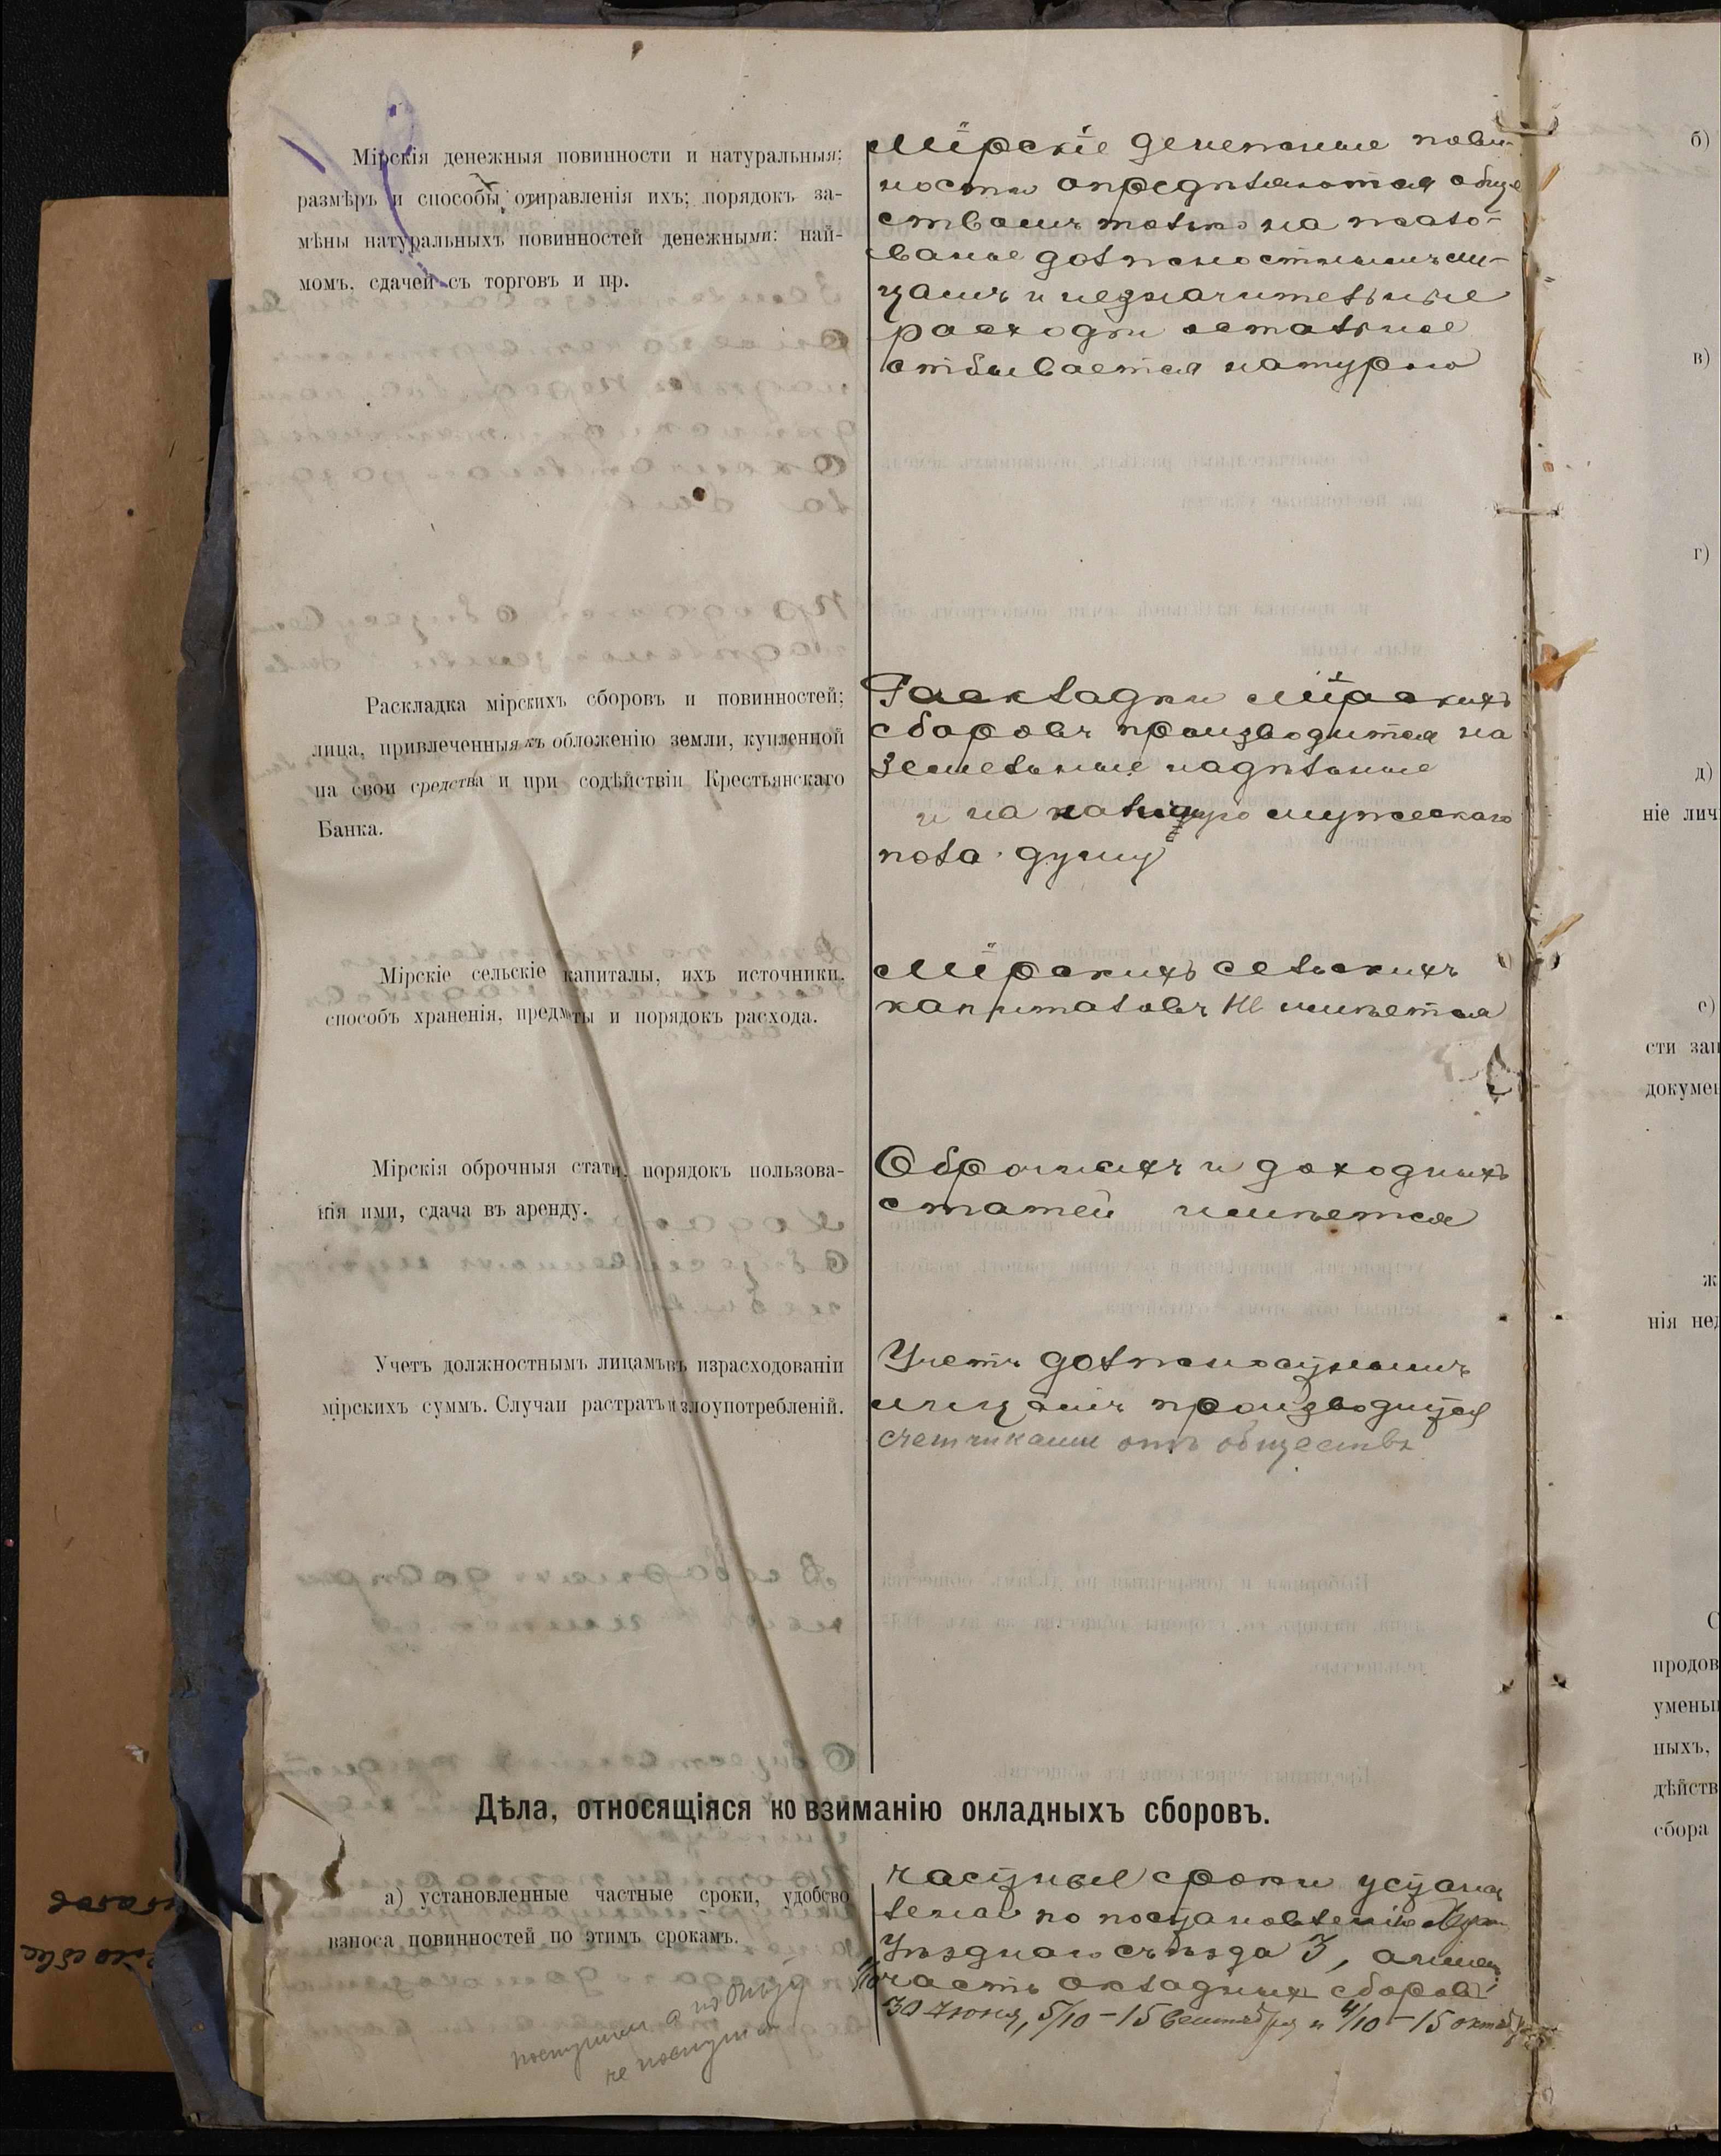 Мірскія денежныя повинности и натуральныя:
размѣръ и способы отправленія ихъ; порядокъ за-
мѣны натуральныхъ повинностей денежными: най-
момъ, сдачей съ торговъ и пр.
Мірскіе денежные повин-
ности опредѣляются обще
ствомъ только на жало-
ванье должностнымъ ли-
цамъ и незначительные
расходы остальное
отбывается натурою
Раскладка мірскихъ сборовъ и повинностей;
лица, привлеченныя къ обложенію земли, купленной
на свои средства и при содѣйствіи Крестьянскаго
Банка.
Раскладки мірскихъ
сборовъ производится на
земельные надѣльные
и на мужескаго
пола душу
Мірскіе сельскіе капиталы, ихъ источники,
способъ храненія, предметы и порядокъ расхода.
Мірскихъ сельскихъ
капиталовъ не имѣется
Мірскія оброчныя статьи, порядокъ пользова-
нія ими, сдача въ аренду.
Оброчныхъ и доходныхъ
статей имѣется
Учетъ должностнымъ лицамъ въ израсходованіи
мірскихъ суммъ. Случаи растратъ и злоупотребленій.
Учетъ должностнымъ
лицамъ производится
счетчиками отъ общества
Дѣла, относящіяся ко взиманію окладныхъ сборовъ.
а) установленные частные сроки, удобство
взноса повинностей по этимъ срокамъ.
частные сроки устанав
лены по постановленію
Уѣзднаго съѣзда 3, а
часть окладныхъ сборовъ
30 Іюня, 5/10 – 15 Сентября и 4/10 – 15 октября
не
б)
в)
г)
д)
ніе лич
е)
сти зап
докумен
ж
нія нед
С
продов
уменьш
ныхъ,
дѣйств
сбора